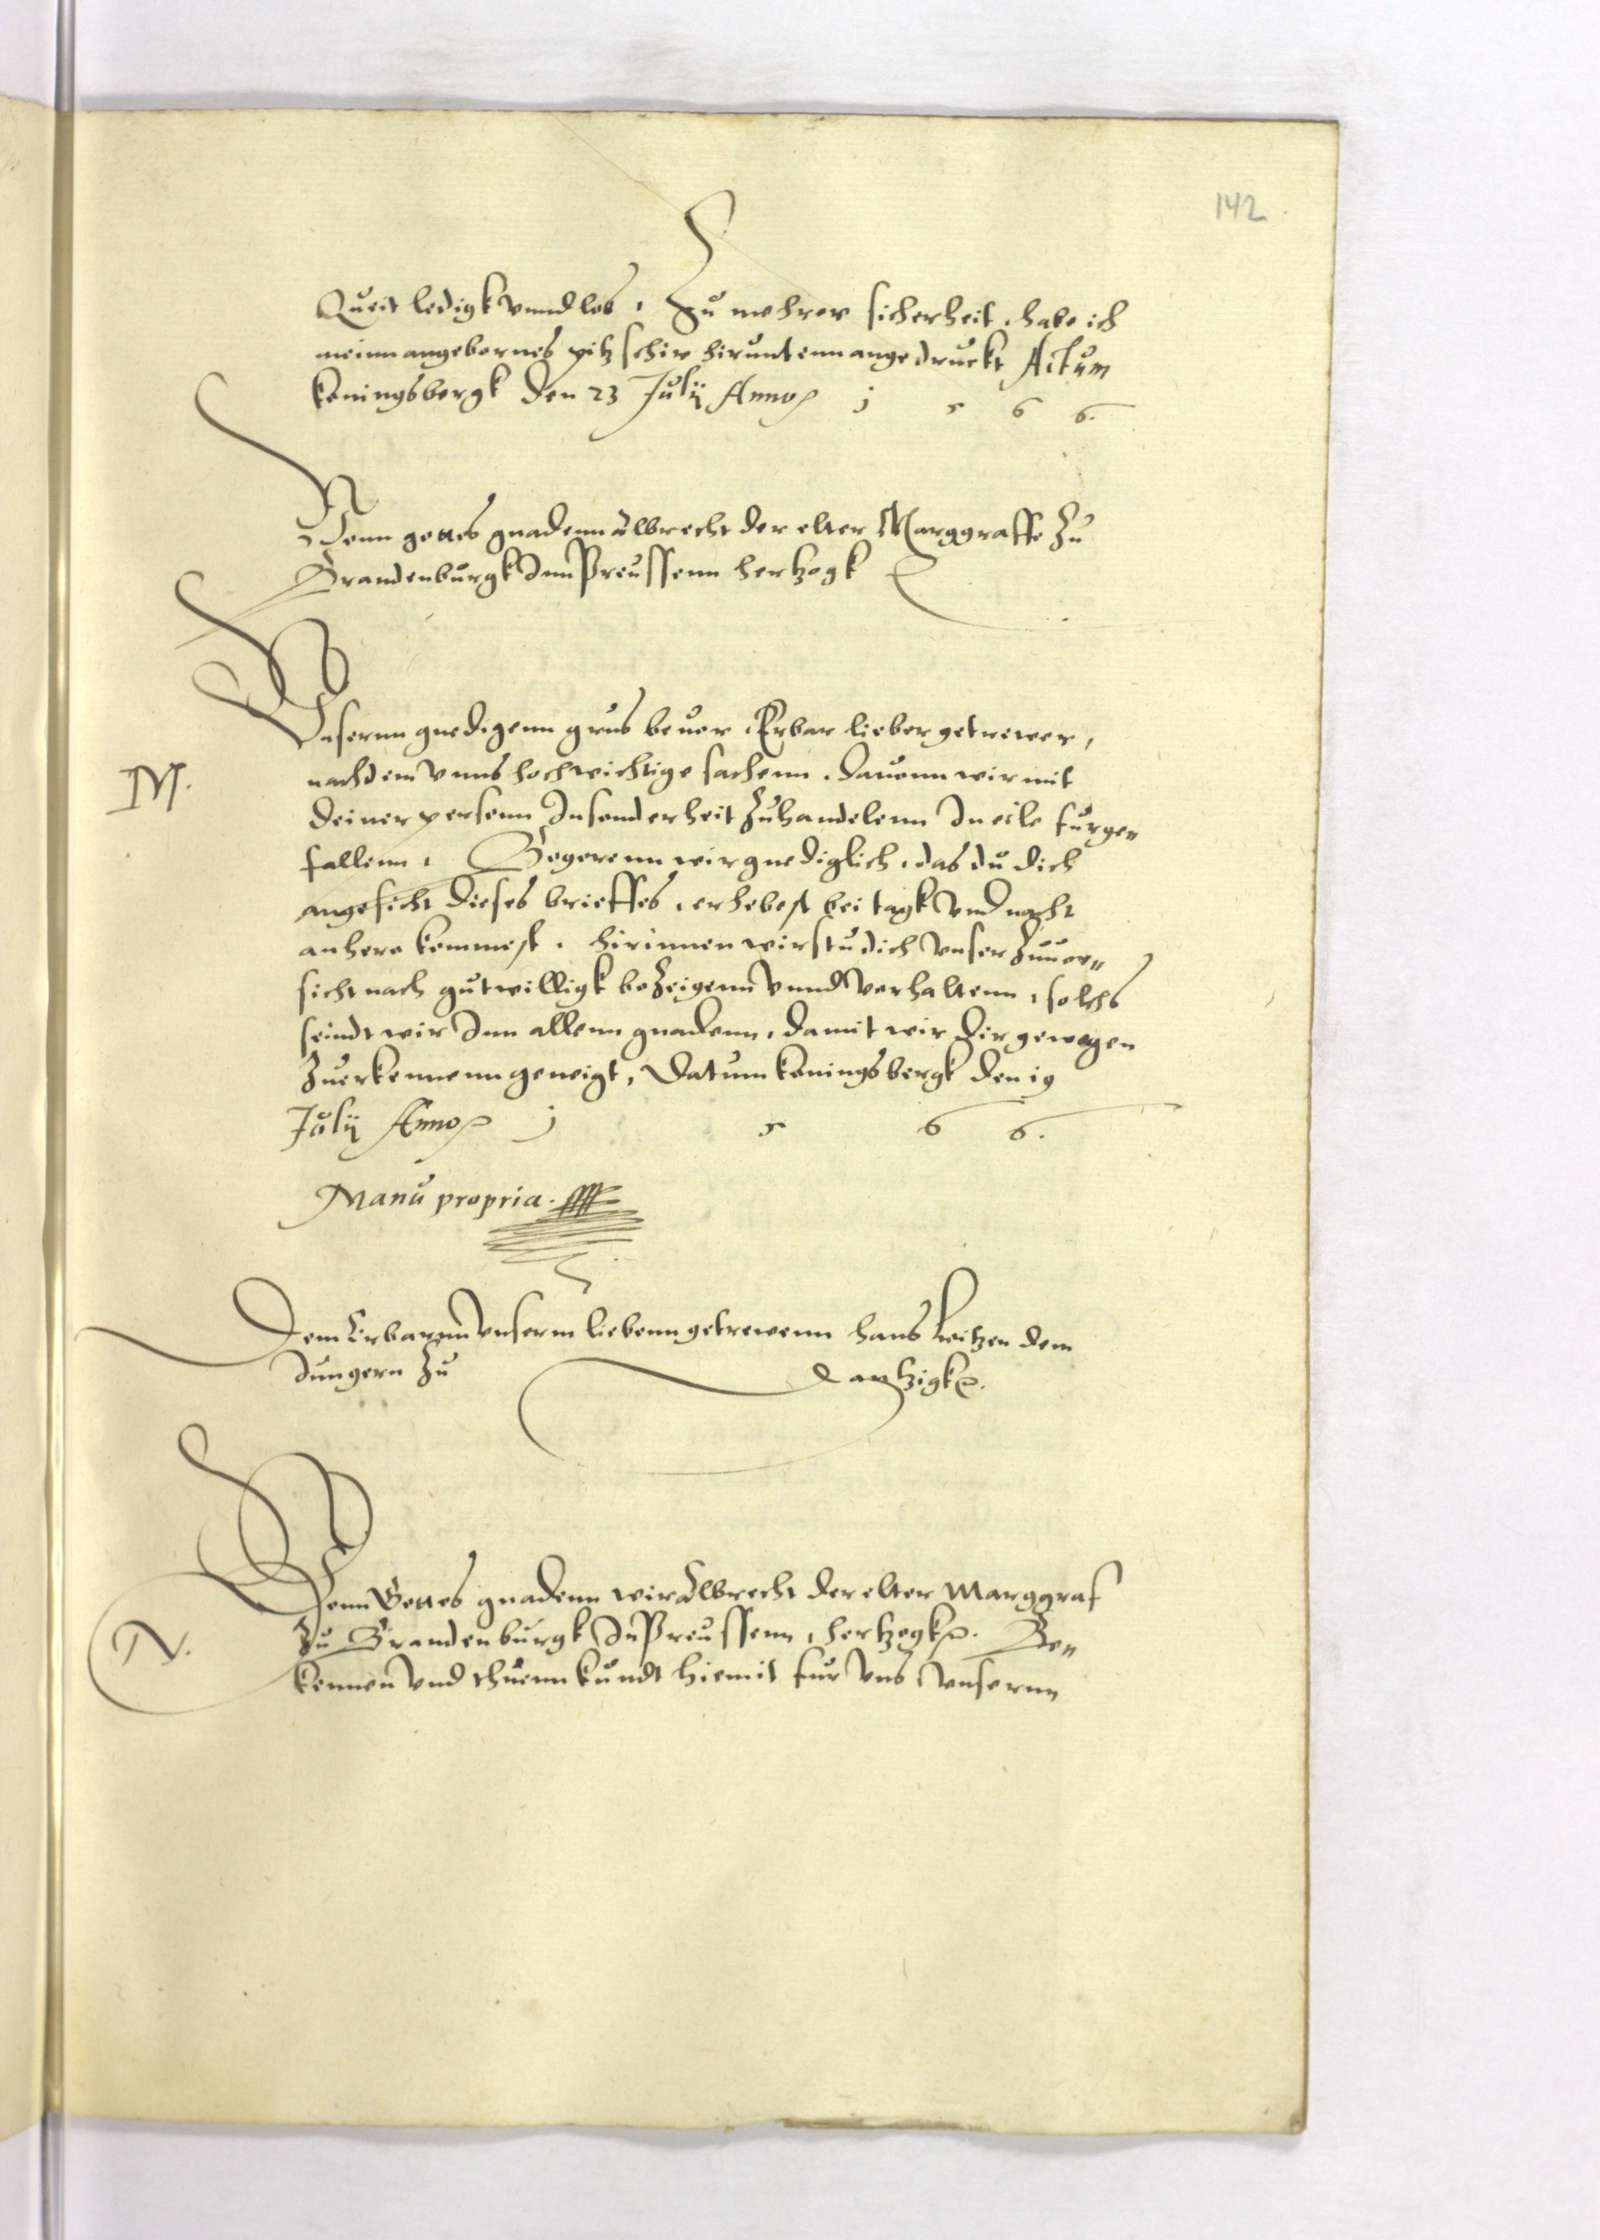 142
Queit ledigk vnnd los, Zu mehrer sicherheit, habe ich
meinn angebornes pitzschir hirunten angedruckt Actum
koningsbergk den 23 July Anno 1 5 6 6.
Vonn gottes gnadenn Albrecht der elter Marggraffe zu
Brandenburgk Inn Preussenn hertzogk
M.
Vnsernn gnedigenn grus beuor, Erbar lieber getrewer,
nachdem vnns hochwichtige sachenn, dauonn wir mit
deiner personn Insonderheit zuhandelenn In eile furge„
fallenn, Begerenn wir gnediglich, das du dich
angesicht dieses brieffes, erhebest bei tagk vnd nacht
anhero kommest, hirinnen wirstu dich vnser zuuor„
sicht nach gutwilligk bezeigenn vnnd verhaltenn, solchs
seindt wir Inn allenn gnadenn, damit wir dir gewogen
zuerkennenn geneigt, Datum koningsbergk den 19
July Anno 1 5 6 6.
Manu propria.
Dem Erbarnn vnserm liebenn getrewenn hans
dem
Jungern zu Dantzigk
N.
Vonn Gottes gnadenn wir Albrecht der elter Marggraf
zu Brandenburgk In Preussenn, hertzogk. Be„
kennen vnd thuenn kundt hiemit fur vns vnsernn